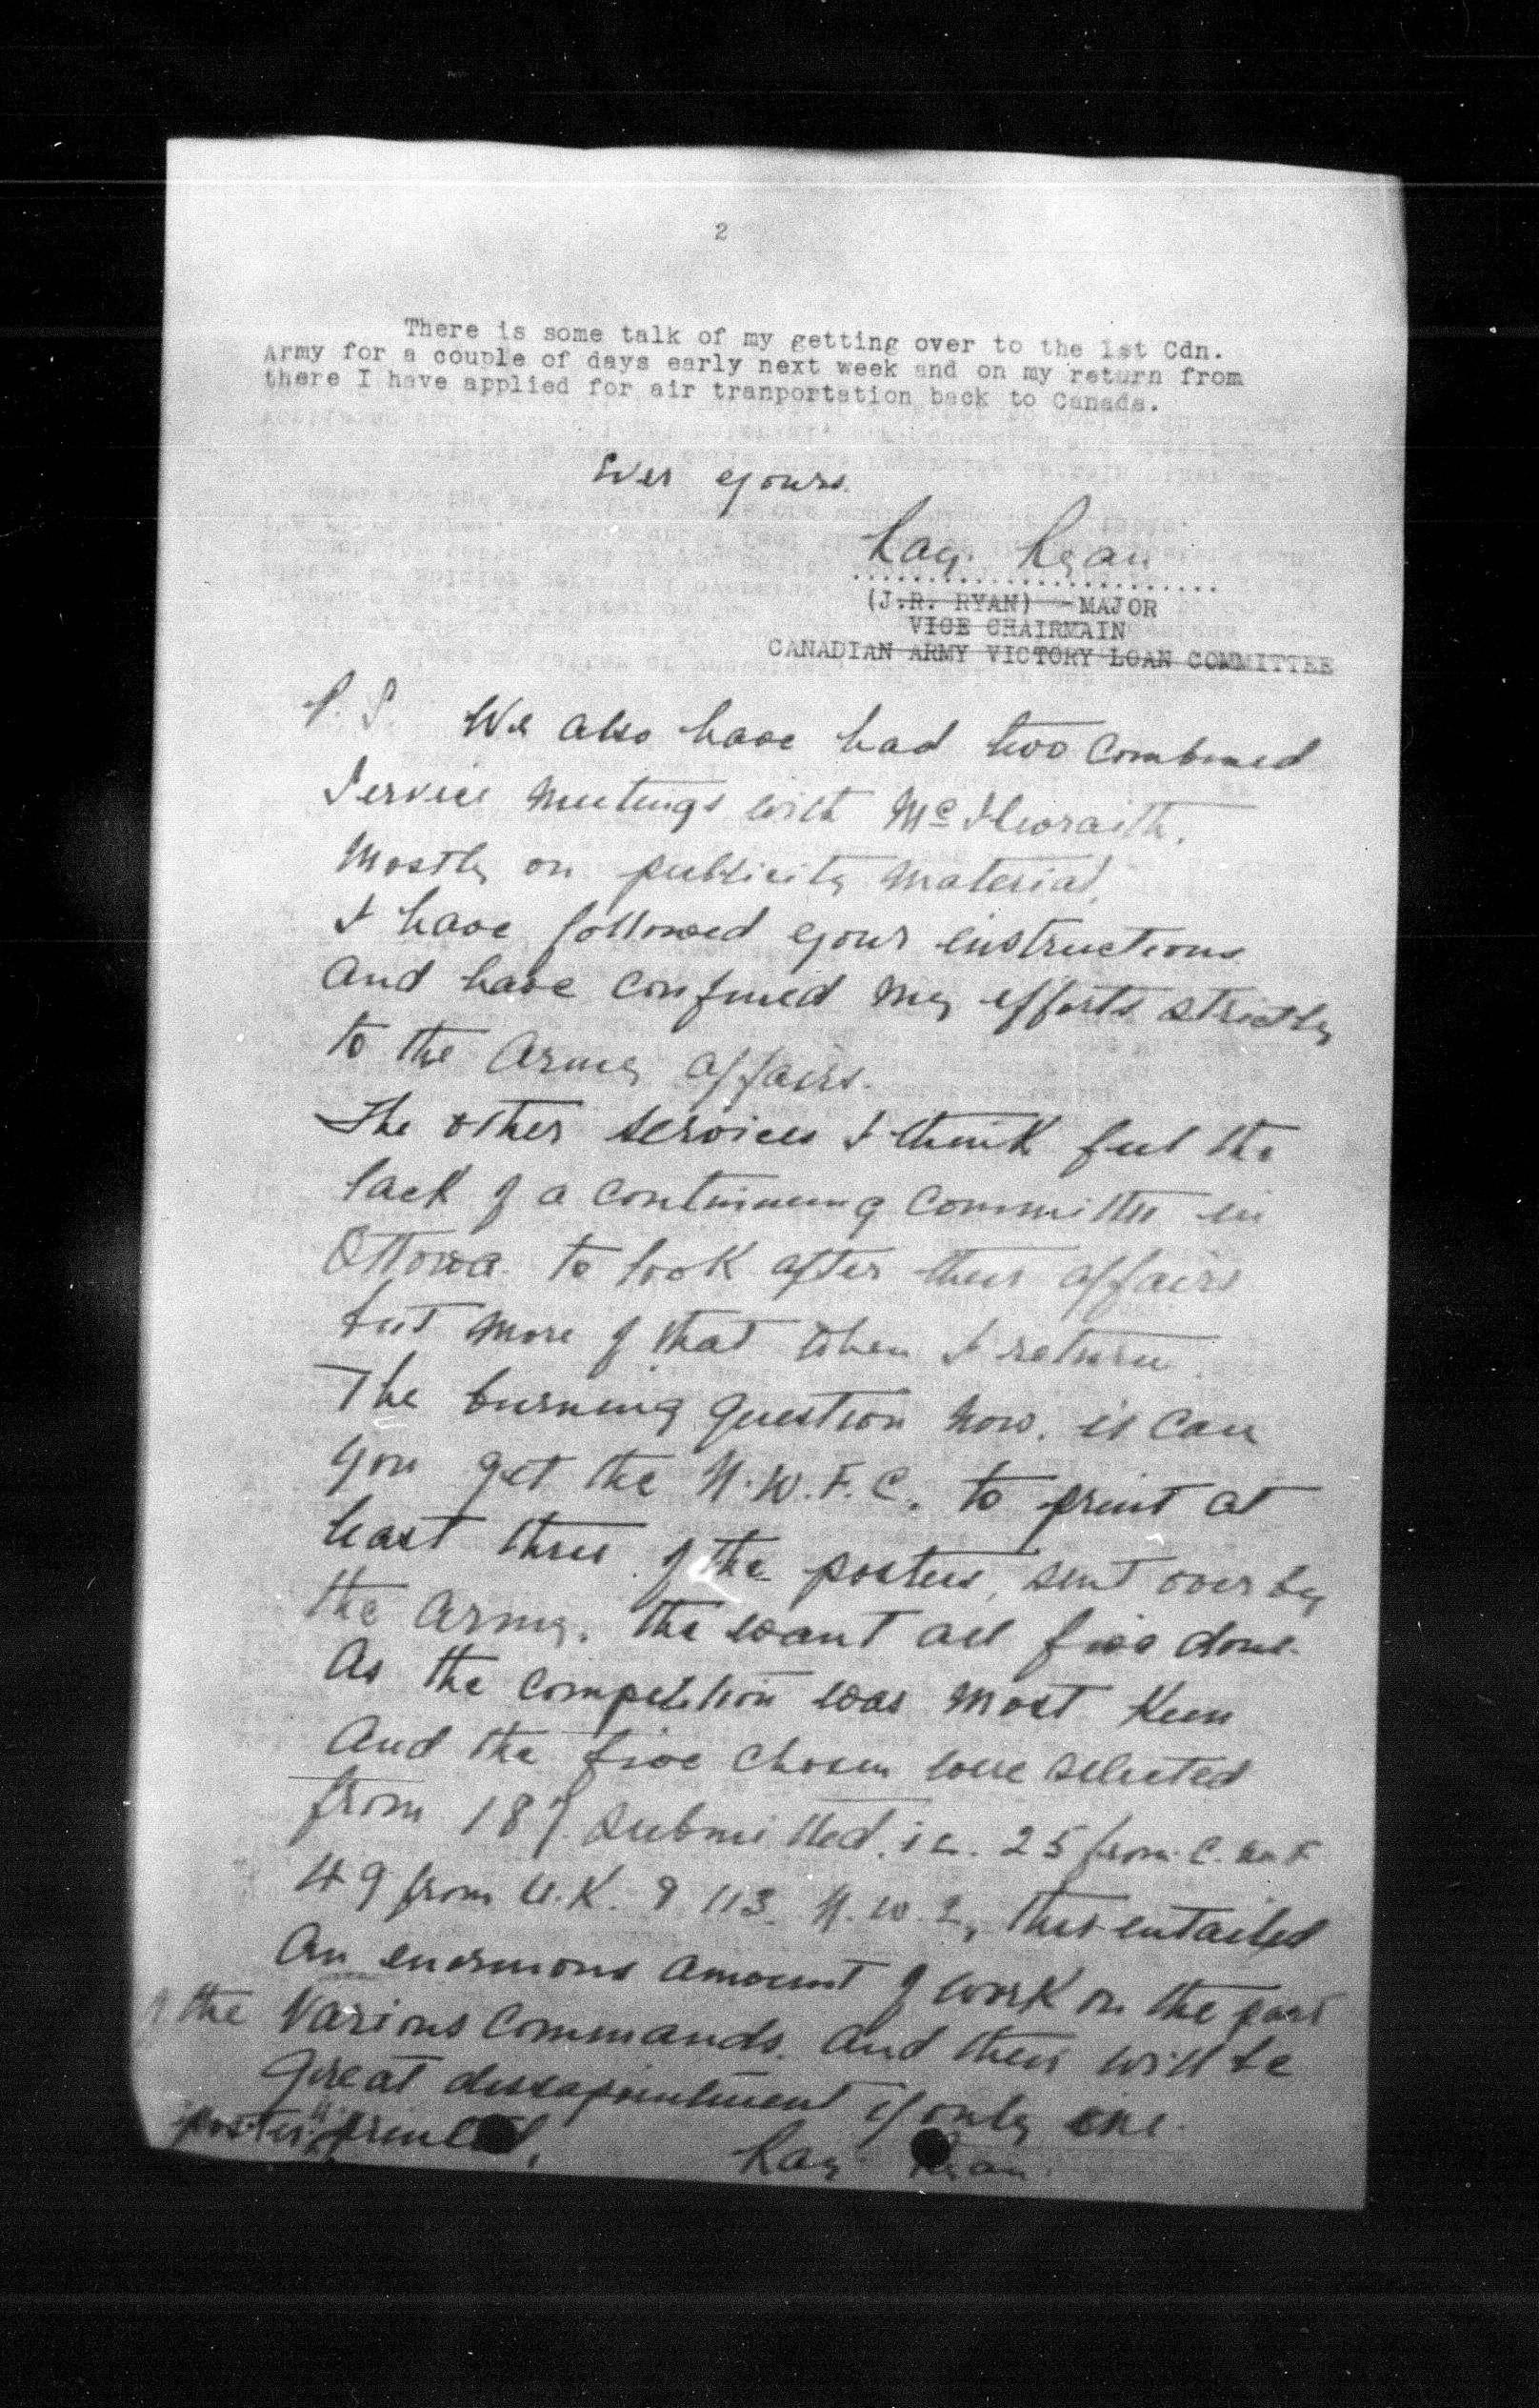 2
There is some talk of my getting over to the 1st Cdn.
Army for a couple of days early next week and on my return from
there I have applied for air tranportation back to Canada.
Ever yours.
Ray. Ryan
........................
(J.R. RYAN) - MAJOR
VICE CHAIRMAIN
CANADIAN ARMY VICTORY LOAN COMMITTEE
P.S. We also have had two combined
Service meetings with McIlwraith.
Mostly on publicity material.
I have followed your instructions
and have confined my efforts strictly
to the Army affairs.
The other services I think feel the
lack of a continuing committee in
Ottowa to look after their affairs
but more of that when I return.
The burning question now. is can
you get the N.W.F.C. to print at
least three of the posters, sent over by
the Army. the want all five done.
As the competition was most keen
And the five chosen were selected
from 187 submitted. ie. 25 from C.
49 from U.K. & 113. this entailed
an enormous amount of work on the part
of the various commands. and their will be
great dissapointment if only one.
poster printed.
Ray Ryan.